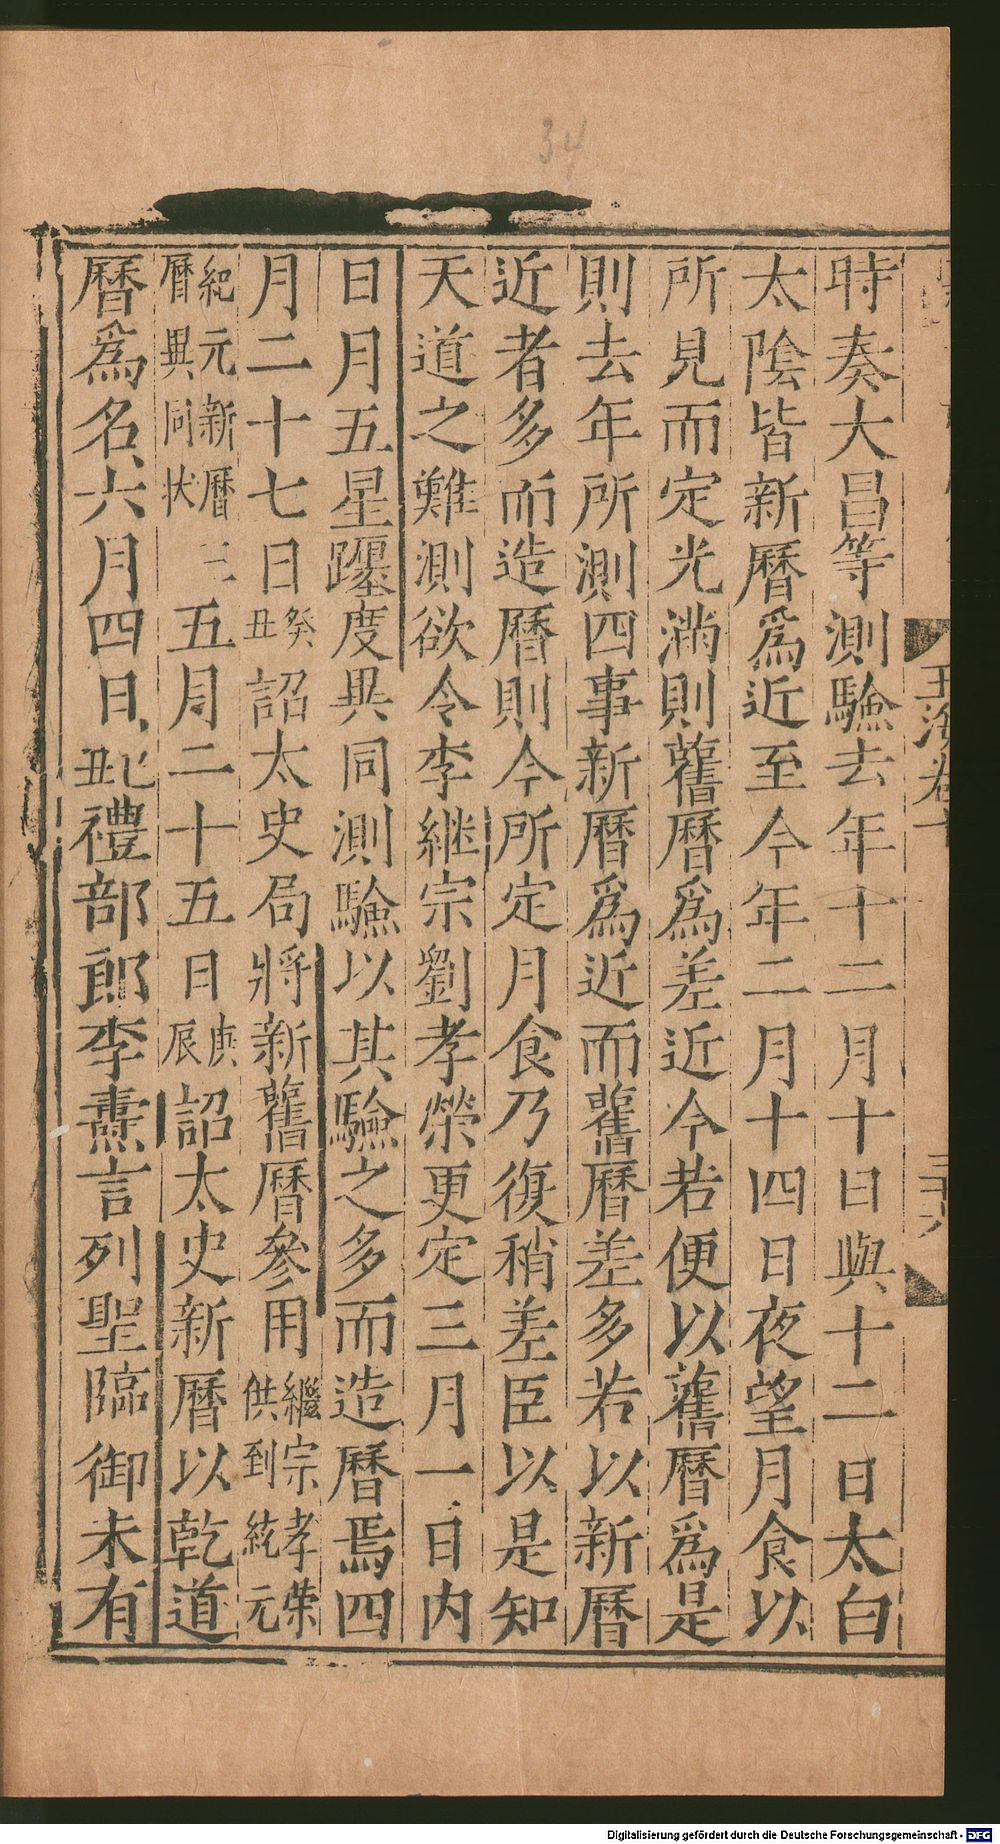 34
玉海卷十
三十六
時奏大昌等測驗去年十二月十日與十二日太白
太陰皆新曆爲近至今年二月十四日夜望月食以
所見而定光滿則舊曆爲差近今若便以舊曆爲是
則去年所測四事新曆爲近而舊曆差多若以新曆
近者多而造曆則今所定月食乃復稍差臣以是知
天道之難測欲令李継宗劉孝榮更定三月一日内
日月五星躔度異同測驗以其驗之多而造曆焉四
月二十七日癸丑詔太史局將新舊曆參用繼宗孝荣供到統元
紀元新曆曆異同状三五月二十五日庚辰詔太史新曆以乾道
曆爲名六月四日己丑禮部郎李燾言列聖臨御未有
Digitalisierung gefördert durch die Deutsche Forschungsgemeinschaft - DFG